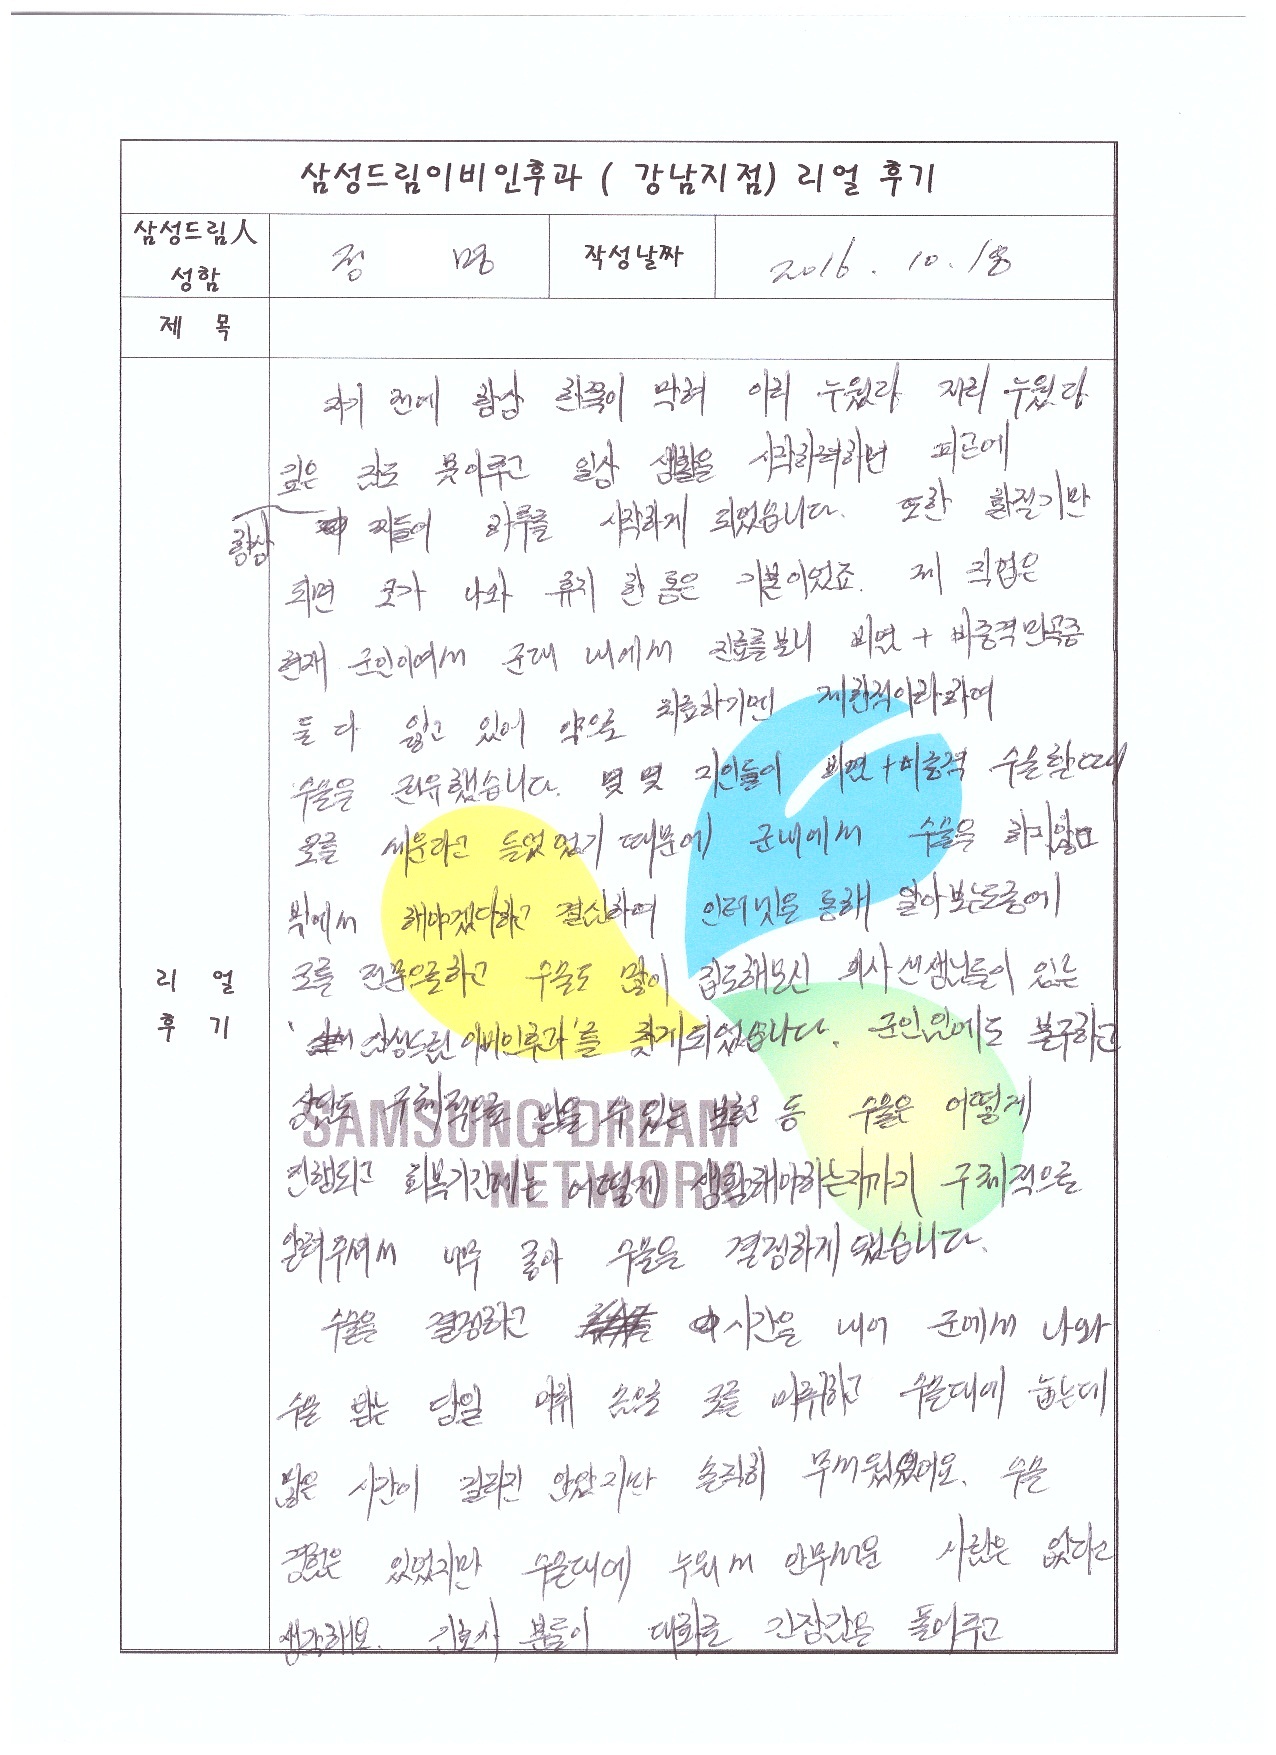 삼성드림이비인후과 ( 강남지점) 리얼 후기
삼성드림人 성함
정 명
작성날짜
2016. 10. 18
제 목
리 얼 후 기
자기 전에 항상 한쪽이 막혀 이리 누웠다 저리 누웠다
깊은 잠도 못이루고 일상 생활을 시작하려하면 피곤에
항상 찌들어 하루를 시작하게 되었습니다. 또한 환절기만
되면 코가 나와 휴지 한 롬은 기본이었죠. 제 직업은
현재 군인이여서 군대 내에서 진료를보니 비염 + 비중격만곡증
둘 다 앓고 있어 약으로 치료하기엔 제한적이라하여
수술을 권유했습니다. 몇 몇 지인들이 비염+비중격 수술할때
코를 세운라고 들었었기 때문에 군내에서 수술은 하지않고
밖에서 해야겠다하고 결심하여 인터넷을 통해 알아보는도중에
코를 전문으로하고 수술도 많이 집도해보신 의사선생님들이 있는
' 삼성드림이비인후과'를 찾게되었습니다. 군인임에도 불구하고
상담도 구체적으로 받을 수 있는 보험 등 수술은 어떻게
진행되고 회복기간에는 어떻게 생활해야하는지까지 구체적으로
알려주셔서 너무 좋아 수술을 결정하게 됐습니다.
수술을 결정하고 시간을 내어 군에서 나와
수술 받는 당일 마취 솜으로 코를 마취하고 수술대에 눕는데
많은 시간이 걸리진 않았지만 솔직히 무서웠었어요. 수술
경험은 있었지만 수술대에 누워서 안무서운 사람은 없다고
생각해요. 간호사 분들이 대화로 긴장감을 풀어주고
SAMSUNG DREAM
NETWORK